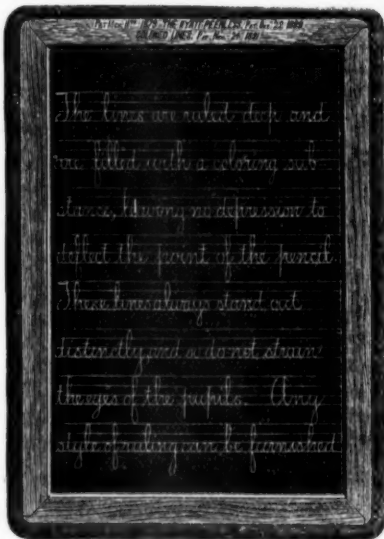 The lines are ruled deep and
are filled with a coloring sub
stance, leaving no depression to
deflect the point of the pencil.
These lines always stand out
distinctly and so do not strain
the eyes of the pupils. Any
style of ruling can be furnished